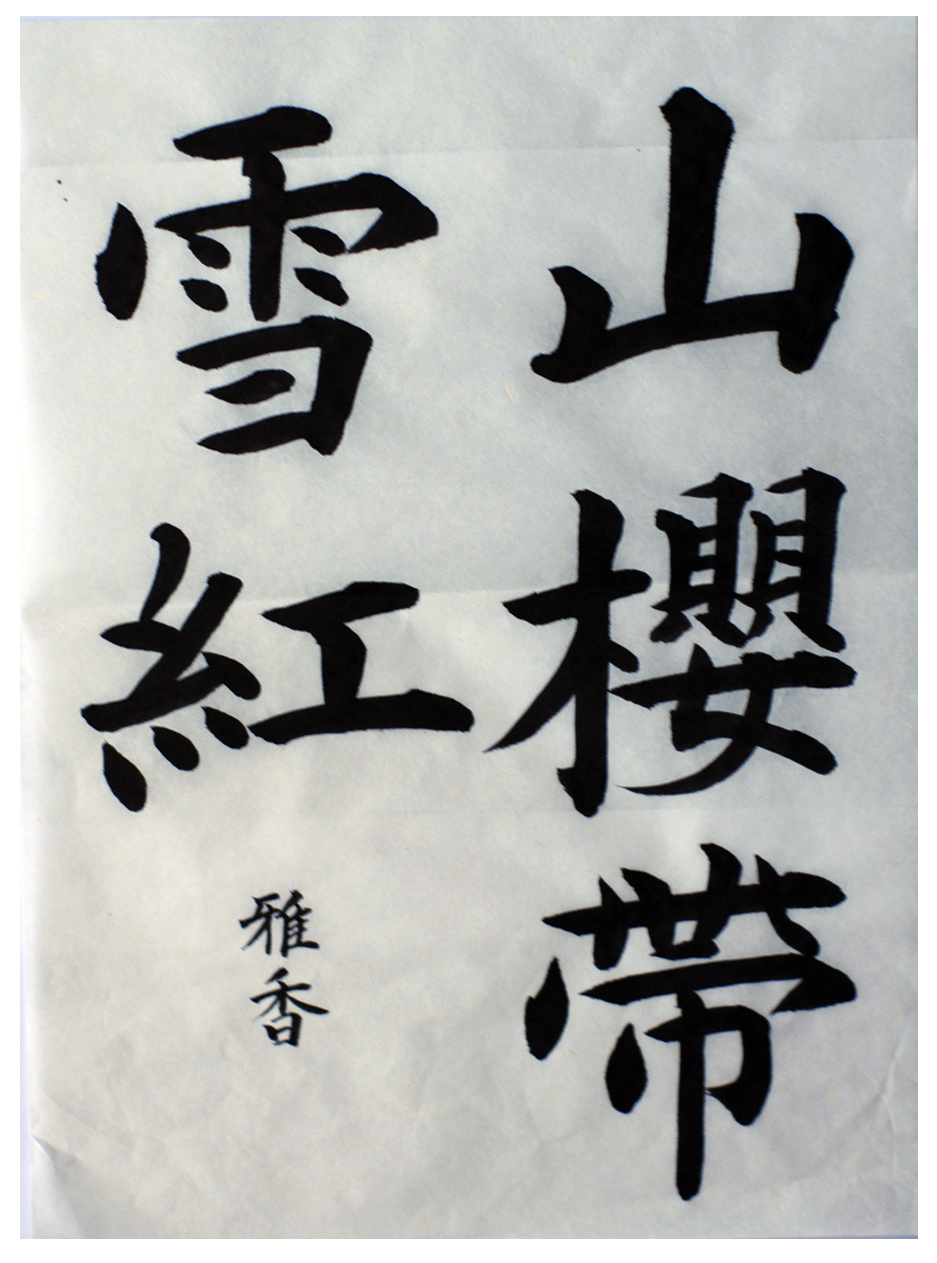 山櫻帶
雪紅
雅香